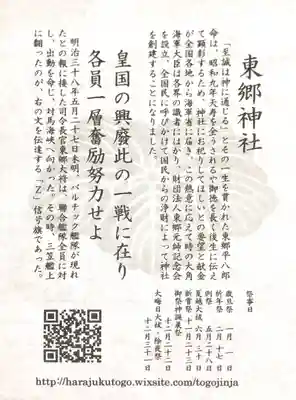 東郷神社
「至誠は神に通ずる」とその一生を貫かれた東郷平八郎
命は、昭和九年天寿を全うされるや御徳を長く後生に伝え
て顕彰するため、神社にお祀りしてほしいとの要望と献金
が全国各地から海軍省に届き、この熱意に応えて時の大角
海軍大臣は各界の識者にはかり、財団法人東郷元帥記念会
を設立、全国民に呼びかけて国民からの浄財によって神社
を創建することになりました。
皇国の興廃此の一戦に在り
各員一層奮励努力せよ
明治三十八年五月二十七日未明、バルチック艦隊が現れ
たとの報に接した司令長官東郷大将は、聯合艦隊全員に対
し、出動を命じ、対馬海峡へ向かった。その時、三笠艦上
に翻ったのが、右の文を伝達する「Z」信号旗であった。
祭事日
歳旦祭 一月一日
祈年祭 二月十七日
例祭 五月二十八日
夏越大祓 六月三十日
新嘗祭 十一月二十三日
御祭神誕辰祭 十二月二十二日
大晦日大祓・除夜祭 十二月三十一日
http://harajukutogo.wixsite.com/togojinja